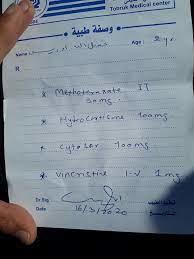 Tobruk Medical center
وصفة طبية
Age : 2 yrs
R
* Methotrexate IT
30mg
* Hydrocortisone 100mg
* Cytosar 100mg
* Vincristine I-V 1mg
Dr.Sig
Date 16/3/2020